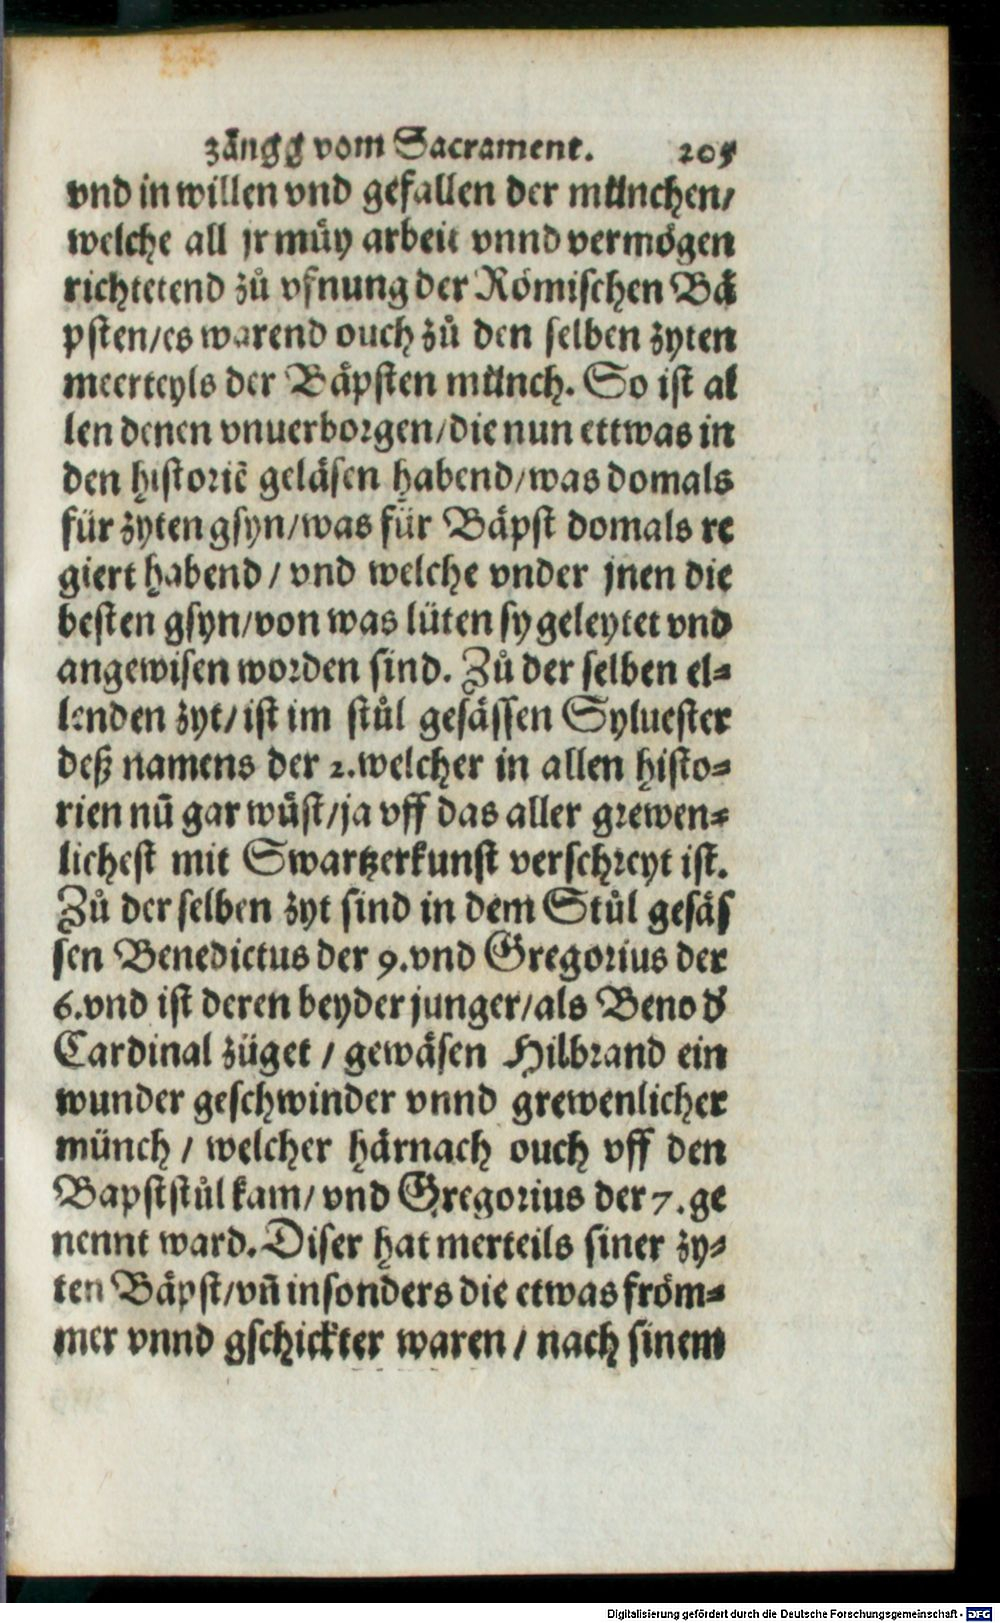 zångg vom Sacrament. 205
vnd in willen vnd gefallen der münchen/
welche all jr müy arbeit vnnd vermögen
richtetend zů vfnung der Römischen Bä
psten/es warend ouch zů den selben zyten
meerteyls der Bäpsten münch. So ist al
len denen vnuerborgen/die nun ettwas in
den historiē geläsen habend/was domals
für zyten gsyn/was für Bäpst domals re
giert habend/ vnd welche vnder jnen die
besten gsyn/von was lüten sy geleytet vnd
angewisen worden sind. Zů der selben el-
lenden zyt/ ist im stůl gesässen Syluester
deß namens der 2.welcher in allen histo-
rien nū gar wüst/ja vff das aller grewen-
lichest mit Swartzerkunst verschreyt ist.
Zů der selben zyt sind in dem Stůl gesäs
sen Benedictus der 9.vnd Gregorius der
6.vnd ist deren beyder junger/als Beno d'
Cardinal züget / gewäsen Hilbrand ein
wunder geschwinder vnnd grewenlicher
münch / welcher härnach ouch vff den
Bapststůl kam/ vnd Gregorius der 7. ge
nennt ward. Diser hat merteils siner zy-
ten Bäpst/vñ insonders die etwas fröm-
mer vnnd gschickter waren / nach sinem
Digitalisierung gefördert durch die Deutsche Forschungsgemeinschaft - DFG